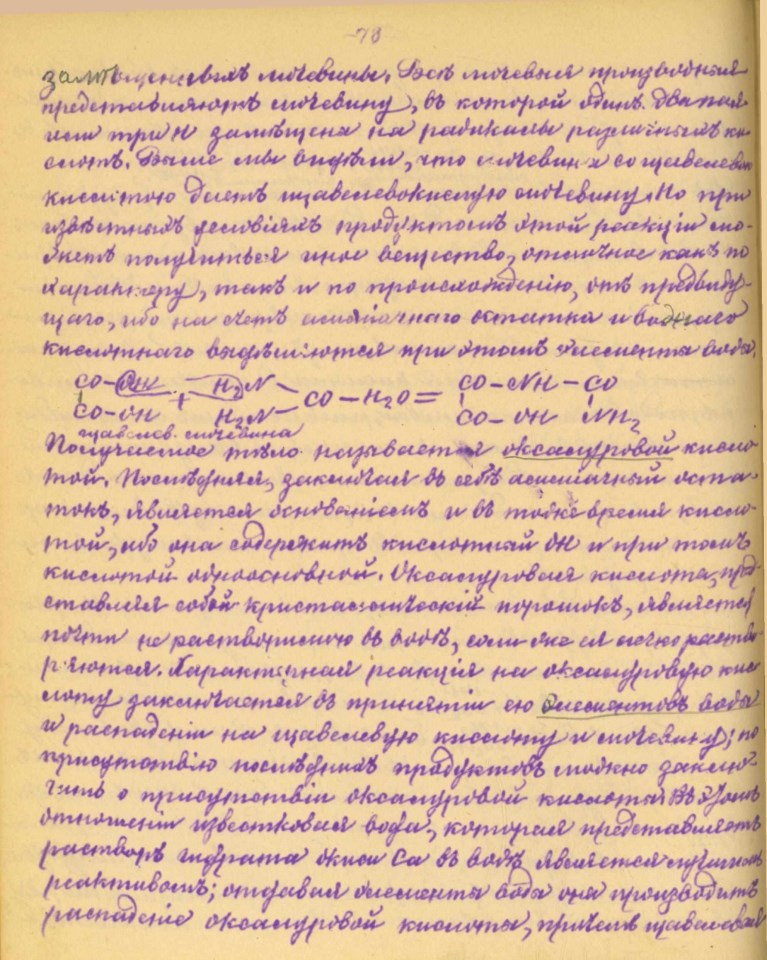 -78
замѣщенныхъ мочевины. Всѣ мочевыя производныя
представляютъ мочевину, въ которой одинъ два пая
или три H замѣщена на радикалы различныхъ ки-
слотъ. Выше мы видѣли, что мочевина со щавелевой
кислотою даетъ щавелевокислую мочевину. Но при
извѣстныхъ условіяхъ продуктомъ этой реакціи мо-
жетъ получиться иное вещество, отличное какъ по
характеру, такъ и по происхожденію, отъ предъиду-
щаго, ибо на счетъ амміачнаго остатка и воднаго
кислотнаго выдѣляются при этомъ элементы воды.
CO-OH + H2N - CO - H2O = CO - NH - CO
CO-OH H2N CO - OH NH2
щавелев. мочевина
Получаемое тѣло называется оксалуровой кисло-
той. Послѣдняя, заключая въ себѣ амміачный оста-
токъ, является основаніемъ и въ тоже время кисло-
той, ибо она содержитъ кислотный OH и при томъ
кислотой одноосновной. Оксалуровая кислота, пред-
ставляя собой кристаллическій порошокъ, является
почти не растворимою въ водѣ, соли же ея легко раство-
ряются. Характерная реакція на оксалуровую кис-
лоту заключается въ принятіи ею элементовъ воды
и распаденіи на щавелевую кислоту и мочевину; по
присутствію послѣднихъ продуктовъ можно заклю-
чить о присутствіи оксалуровой кислоты. Въ этомъ
отношеніи известковая вода, которая представляетъ
растворъ гидрата окиси Ca въ водѣ является лучшимъ
реактивомъ; отдавая элементы воды она производитъ
распаденіе оксалуровой кислоты, причемъ щавелевая